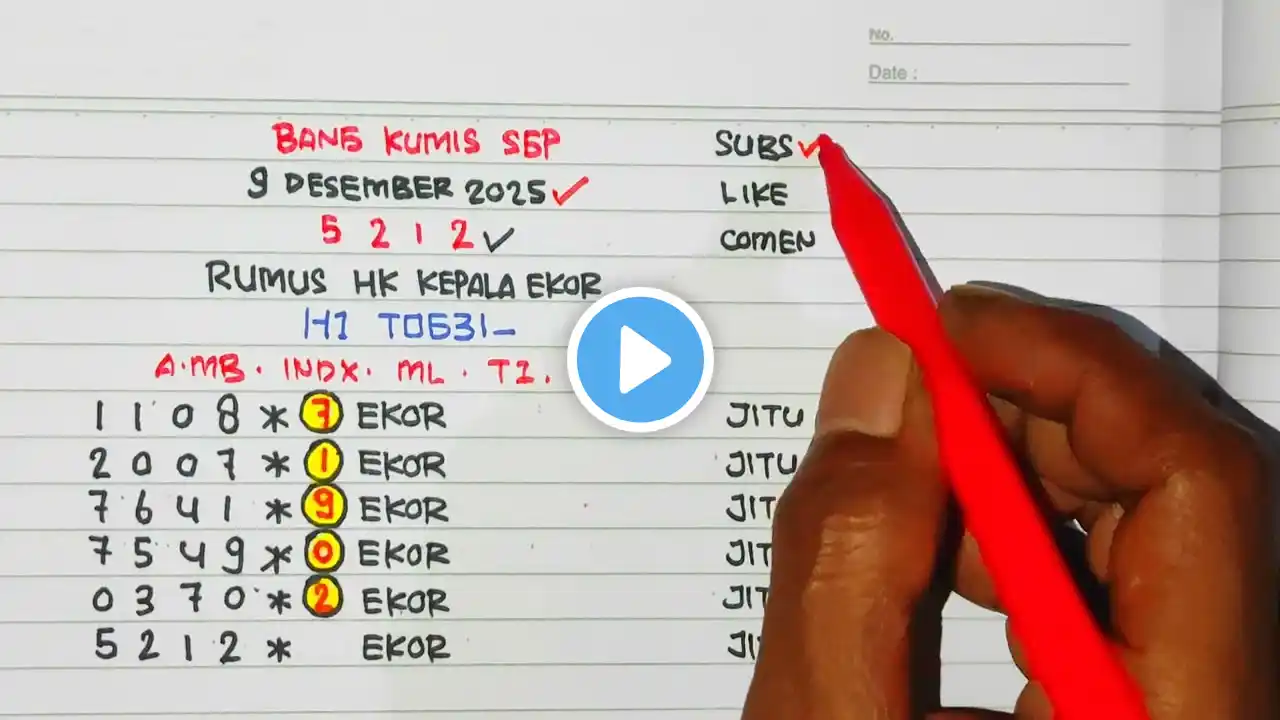 No.
Date :
BANG KUMIS SGP
9 DESEMBER 2025
5 2 1 2
RUMUS HK KEPALA EKOR
A.MB. INDX. ML. TI.
1 1 0 8 * 7 EKOR JITU
2 0 0 7 * 1 EKOR JITU
7 6 4 1 * 9 EKOR
7 5 4 9 * 0 EKOR
0 3 7 0 * 2 EKOR
5 2 1 2 * EKOR
SUBS
LIKE
COMEN